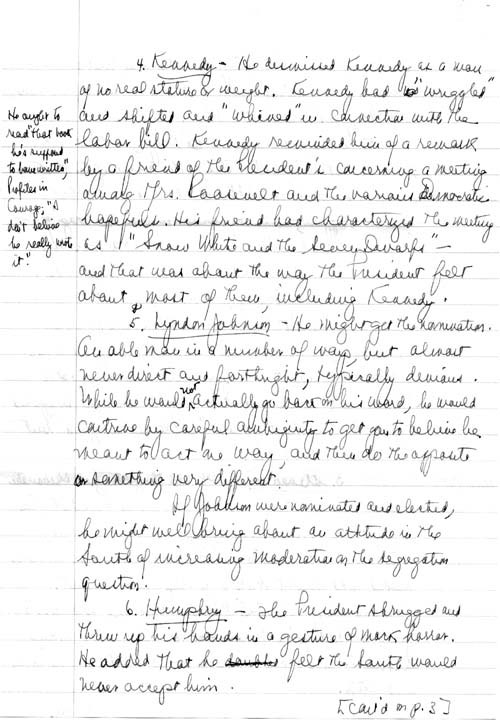 4. Kennedy - He dismissed Kennedy as a man
of no real stature or weight. Kennedy had "wriggled"
and shifted and "whined" in connection with the
labor bill. Kennedy reminded him of a remark
by a friend of the President's concerning a meeting
among Mrs. Roosevelt and the various Democratic
hopefuls. His friend had characterized the meeting
as "Snow White and the Seven Dwarfs" -
and that was about the way the President felt
about most of them, including Kennedy.
He ought to
read "that book
he's supposed
to have written,"
Profiles in
Courage. "I
don't believe
he really wrote
it."
5. Lyndon Johnson - He might get the nomination.
An able man in a number of ways, but almost
never direct and forthright, typically devious.
While he would not actually go back on his word, he would
contrive by careful ambiguity to get you to believe he
meant to act one way, and then do the opposite
or something very different.
If Johnson were nominated and elected,
he might well bring about an attitude in the
South of increasing moderation on the segregation
question.
6. Humphrey - The President shrugged and
threw up his hands in a gesture of mock horror.
He added that he felt the South would
never accept him.
[Con'd on p. 3]